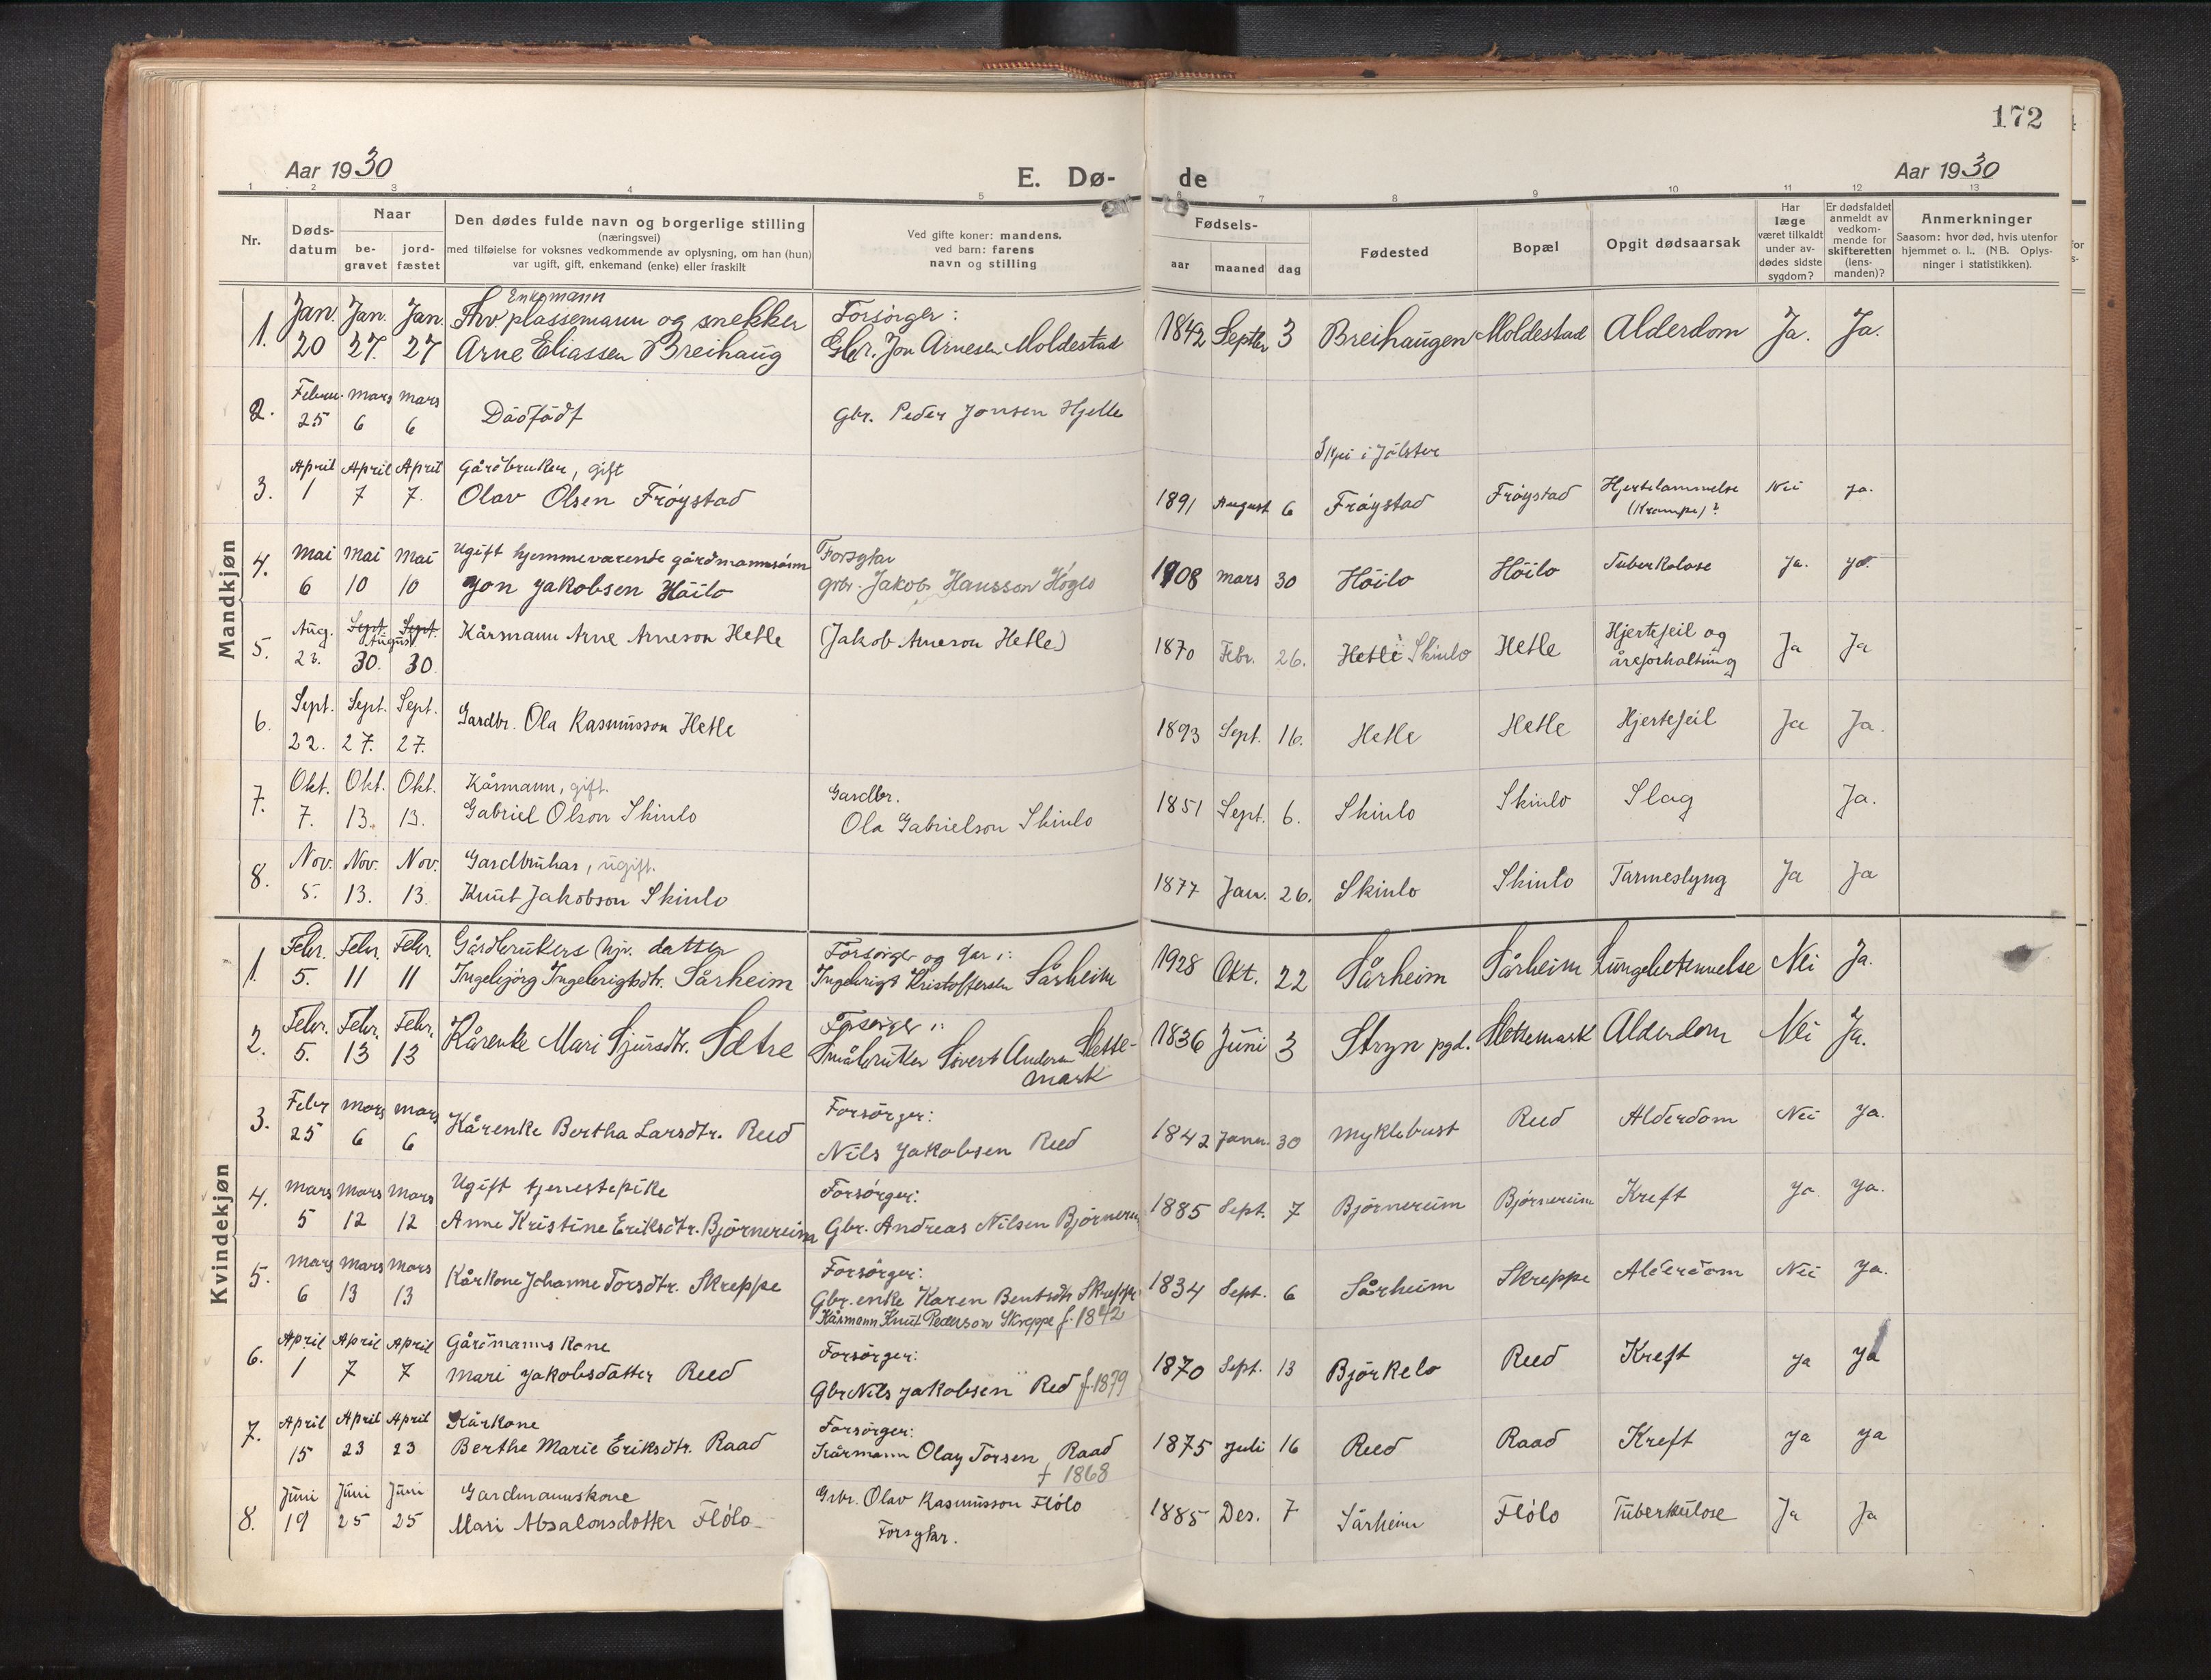 172
Aar 1930
E. Dø-
de
Aar 1930
1 2 3 4 5 6 7 8 9 10 11 12 13
Nr.
Døds-
datum
Naar
be-
gravet
jord-
fæstet
Den dødes fulde navn og borgerlige stilling
(næringsvei)
med tilføielse for voksnes vedkommende av oplysning, om han (hun)
var ugift, gift, enkemand (enke) eller fraskilt
Ved gifte koner: mandens.
ved barn: farens
navn og stilling
Fødsels-
aar
maaned
dag
Fødested
Bopæl
Opgit dødsaarsak
Har
læge
været tilkaldt
under av-
dødes sidste
sygdom?
Er dødsfaldet
anmeldt av
vedkom-
mende for
skifteretten
(lens-
manden)?
Anmerkninger
Saasom: hvor død, hvis utenfor
hjemmet o. l.. (NB. Oplys-
ninger i statistikken).
Mandkjøn
Enkemann
1. Jan. Jan. Jan. Fhv. plassemann og snekker Forsörger:
20 27. 27 Arne Eliassen Breihaug Gbr. Jon Arnesen Moldestad 1842 Septbr 3 Breihaugen Moldestad Alderdom Ja. Ja.
2. Febru. mars mars
25 6 6 Dödfödt gbr. Peder Jonsen Hjelle
Skei i Jölster
3. April April April Gårdbruker, gift
1 7 7. Olav Olsen Fröystad 1891 August 6 Fröystad Fröystad Hjertelammelse (Krampe)? Nei ja.
4. mai mai mai Ugift hjemmeværende gårdmannssönn Forsytar
6 10 10 Jon Jakobsen Höilo grbr. Jakob Hansson Höglo 1908 mars 30 Höilo Höilo Tuberkolose ja. ja.
5. Aug. Sept. Sept. Kårmann Arne Arneson Hetle (Jakob Arneson Hetle)
August
23. 30. 30. 1870 Febr. 26. Hetle Skinlo Hetle Hjertefeil og
åreforkaltning Ja Ja
6. Sept. Sept. Sept. Gardbr. Ola Rasmusson Hetle
22. 27. 27. 1893 Sept. 16. Hetle Hetle Hjertefeil Ja Ja.
7. Okt. Okt. Okt. Kårmann, gift. Gardbr.
7. 13. 13. Gabriel Olson Skinlo Ola Gabrielson Skinlo 1851 Sept. 6. Skinlo Skinlo Slag Ja.
8. Nov. Nov. Nov. Gardbrukar, ugift.
5. 13. 13. Knut Jakobson Skinlo 1877 Jan. 26. Skinlo Skinlo Tarmeslyng Ja Ja
Kvindekjøn
1. Febr. Febr. Febr. Gårdbrukers hjv. datter Forsörger og far:
5. 11 11 Ingebjörg Ingebrigtsdtr. Sårheim Ingebrigt Kristoffersen Sårheim 1928 Okt. 22 Sårheim Sårheim Lungebetennelse Nei Ja.
2. Febr. Febr. Febr. Kårenke Mari Sjursdtr. Sætre Forsörger:
5. 13 13 Småbruker Sivert Anders. Slette-
mark 1836 Juni 3 Stryn pgd. Slettemark Alderdom Nei Ja.
3. Febr mars mars Kårenke Bertha Larsdtr. Reed Forsörger:
25 6 6 Nils Jakobsen Reed 1842 Janu. 30 Myklebust Reed Alderdom Nei ja.
4. mars mars mars Ugift tjenestepike Forsörger:
5 12 12 Anne Kristine Eriksdtr. Björnereim Gbr. Andreas Nilsen Björnereim 1885 Sept. 7 Björnereim Björnereim Kreft ja ja.
5. mars mars mars Kårkone Johanne Torsdtr. Skreppe Forsörger:
6 13 13 Gbr. enke Karen Bentsdtr Skreppe
Kårmann Knut Pederson Skreppe f. 1842 1834 Sept. 6 Sårheim Skreppe Alderdom Nei ja.
6. April April April Gårdmanns kone Forsörger:
1 7 7 Mari Jakobsdatter Reed Gbr Nils Jakobsen Red f. 1879 1870 Sept. 13 Björkelo Reed Kreft ja ja
7. April April April Kårkone Forsörger:
15 23 23 Berthe Marie Eriksdtr. Raad Kårmann Olav Torsen Raad
f 1868 1875 Juli 16 Reed Raad Kreft ja ja
8. Juni Juni Juni Gardmannskone Grbr. Olav Rasmusson Flölo
19 25 25 Mari Absalonsdotter Flölo Forsytar. 1885 Des. 7 Sårheim Flölo Tuberkulose Ja Ja